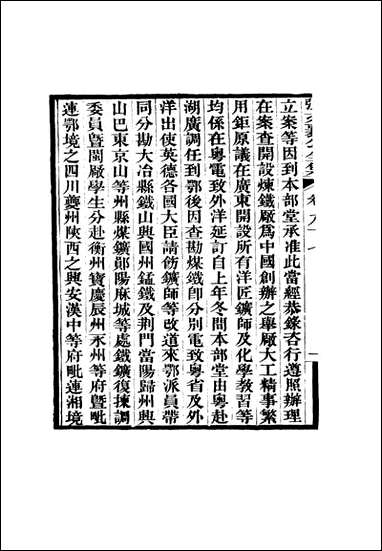 立案等因到本部堂承准此當經恭錄咨行遵照辦理
在案查開設煉鐵廠爲中國創辦之舉廠大工精事繁
用鉅原議在廣東開設所有洋匠鑛師及化學教習等
均係在粵電致外洋延訂自上年冬間本部堂由粵赴
湖廣調任到鄂後因查勘煤鐵卽分別電致粵省及外
洋出使英德各國大臣請飭鑛師等改道來鄂派員帶
同分勘大冶縣鐵山興國州錳鐵及荆門當陽歸州興
山巴東京山等州縣煤鑛鄖陽麻城等處鐵鑛復揀調
委員暨閩廠學生分赴衡州寶慶辰州永州等府暨毗
連鄂境之四川夔州陝西之興安漢中等府毗連湘境